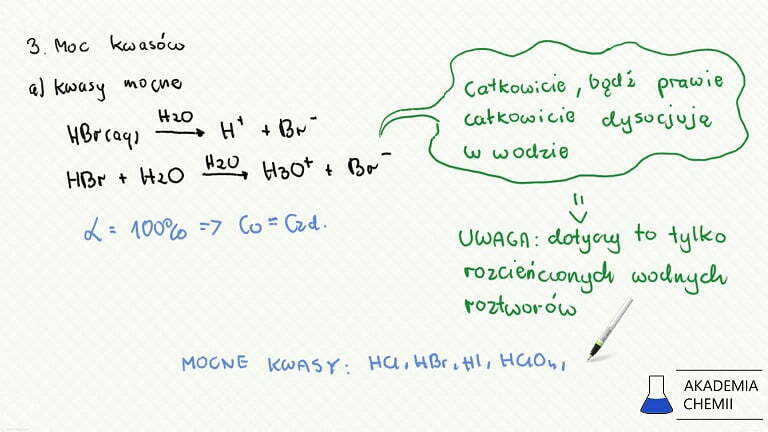 3. Moc kwasów
a) kwasy mocne
HBr(aq) H2O → H⁺ + Br⁻
HBr + H2O H2O → H3O⁺ + Br⁻
α = 100% => Co = Czd.
Całkowicie, bądź prawie
całkowicie dysocjują
w wodzie
UWAGA: dotyczy to tylko
rozcieńczonych wodnych
roztworów
MOCNE KWASY: HCl, HBr, HI, HClO4,
AKADEMIA
CHEMII